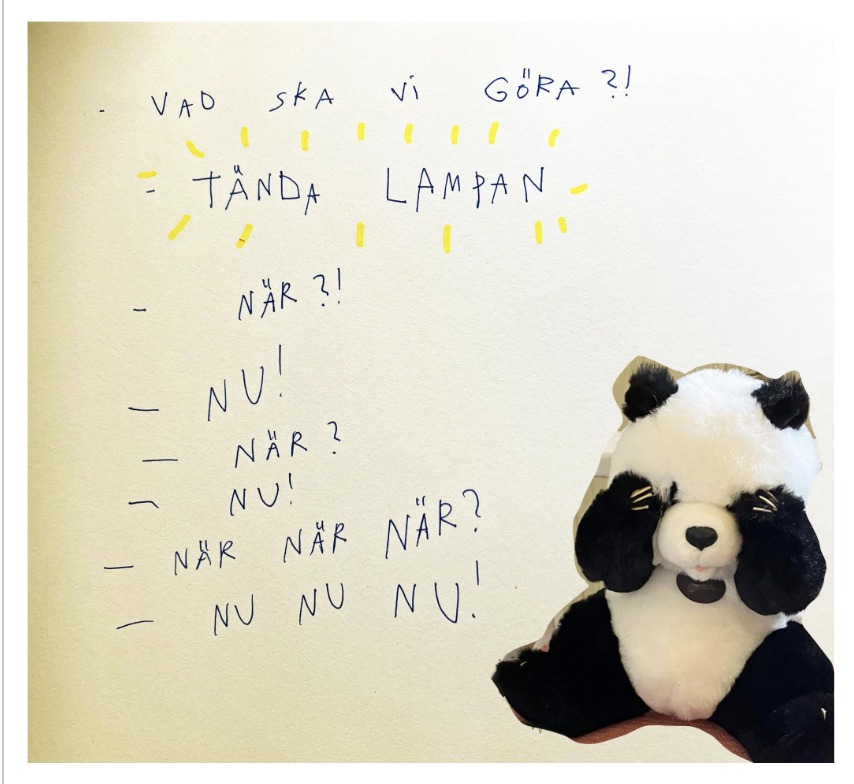 - VAD SKA Vi GÖRA ?!
- TÄNDA LAMPAN
- NÄR ?!
- NU!
- NÄR ?
- NU!
- NÄR NÄR NÄR?
- NU NU NU!